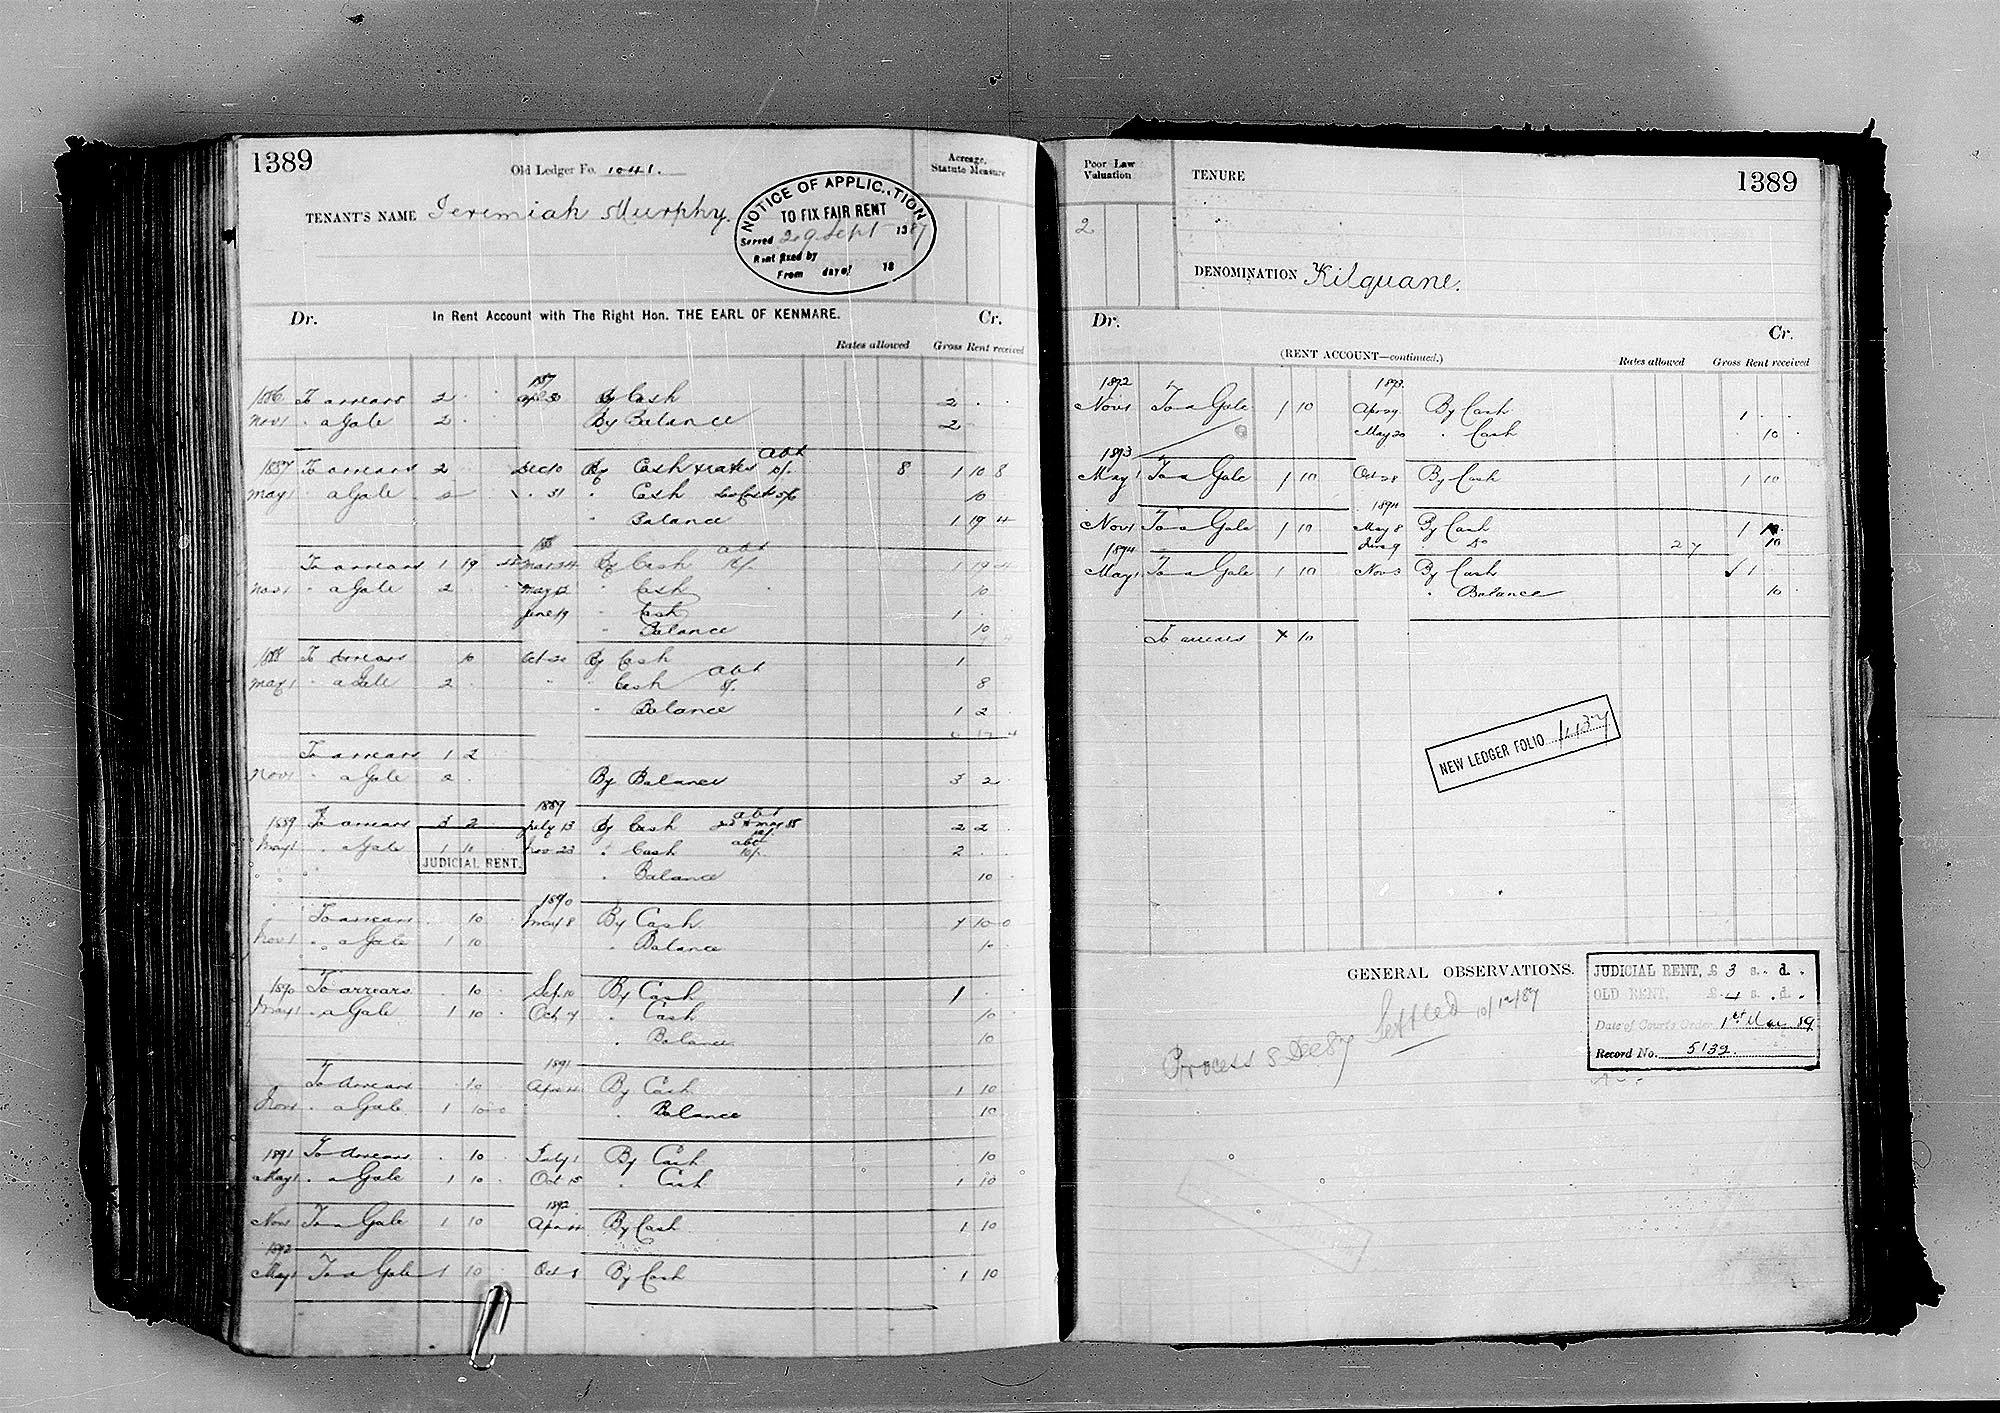 1389
Old Ledger Fo. 1041.
Acreage.
Statute Measure
TENANT'S NAME Jeremiah Murphy.
NOTICE OF APPLICATION
TO FIX FAIR RENT
Served 29 Sept 1887
Rent fixed by
From days 18
Dr. In Rent Account with The Right Hon. THE EARL OF KENMARE. Cr.
Rates allowed Gross Rent received
1887
1886 To arrears 2 By Cash 2
Nov 1 " a Gale 2 By Balance 2
abt
1887 To arrears 2 Dec 10 By Cash & rates 8 1 10 8
May 1 a Gale 2 " 31 " Cash 10
" Balance 1 19 4
To arrears 1 19 By Cash 1 19 4
abt
Nov 1 " a Gale 2 May 12 " Cash 10
June 19 " Cash 1
" Balance 10
1888 To Arrears 10 Oct 20 By Cash 1
May 1 " a Gale 2 " " Cash abt 8/. 8
" Balance 1 2
To arrears 1 2
Nov 1 " a Gale 2 By Balance 3 2
1889
1889 To arrears 3 2 July 13 By Cash abt 2 2
May 1 " a Gale 1 10 Nov 23 " Cash abt 10/. 2
JUDICIAL RENT.
" Balance 10
1890
To arrears 10 May 8 By Cash 1 10 0
Nov 1 " a Gale 1 10 " Balance 10
1890 To arrears 10 Sep 10 By Cash 1
May 1 " a Gale 1 10 Oct 7 " Cash 10
" Balance 10
1891
To Arrears 10 Apr 4 By Cash 1 10
Nov 1 " a Gale 1 10 0 " Balance 10
1891 To Arrears 10 July 1 By Cash 10
May 1 " a Gale 1 10 Oct 15 " Cash 1 10
1892
Nov 1 To a Gale 1 10 By Cash 1 10
1892
May 1 To a Gale 1 10 Oct 8 By Cash 1 10
Poor Law
Valuation
TENURE
1389
2
DENOMINATION Kilquane.
Dr. Cr.
(RENT ACCOUNT—continued.)
Rates allowed Gross Rent received
1892 1893
Nov 1 To a Gale 1 10 Apr 29 By Cash 1
May 20 " Cash 10
1893
May 1 To a Gale 1 10 Oct 28 By Cash 1 10
1894
Nov 1 To a Gale 1 10 May 8 By Cash 1
June 9 " Do 2 7 10
1894
May 1 To a Gale 1 10 Nov 3 By Cash 1
" Balance 10
To arrears 10
NEW LEDGER FOLIO 1137
GENERAL OBSERVATIONS.
Process 8 Dec 87 Settled 10/12/87
JUDICIAL RENT, £ 3 s. d.
OLD RENT, £ 4 s. d.
Date of Court's Order 1st Mar 89
Record No. 5139